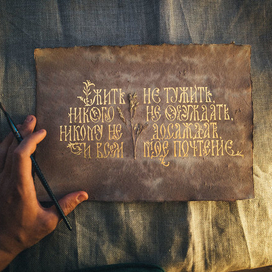 Жить не тужить,
никого не осуждать,
никому не досаждать,
и всем мое почтение.